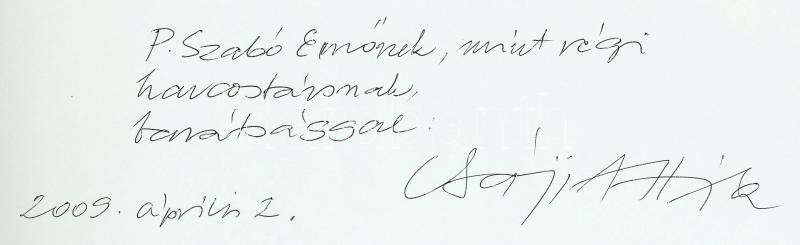 P. Szabó Ernőnek, mint régi
harcostársnak,
barátsággal:
Csáji Attila
2009. április 2.